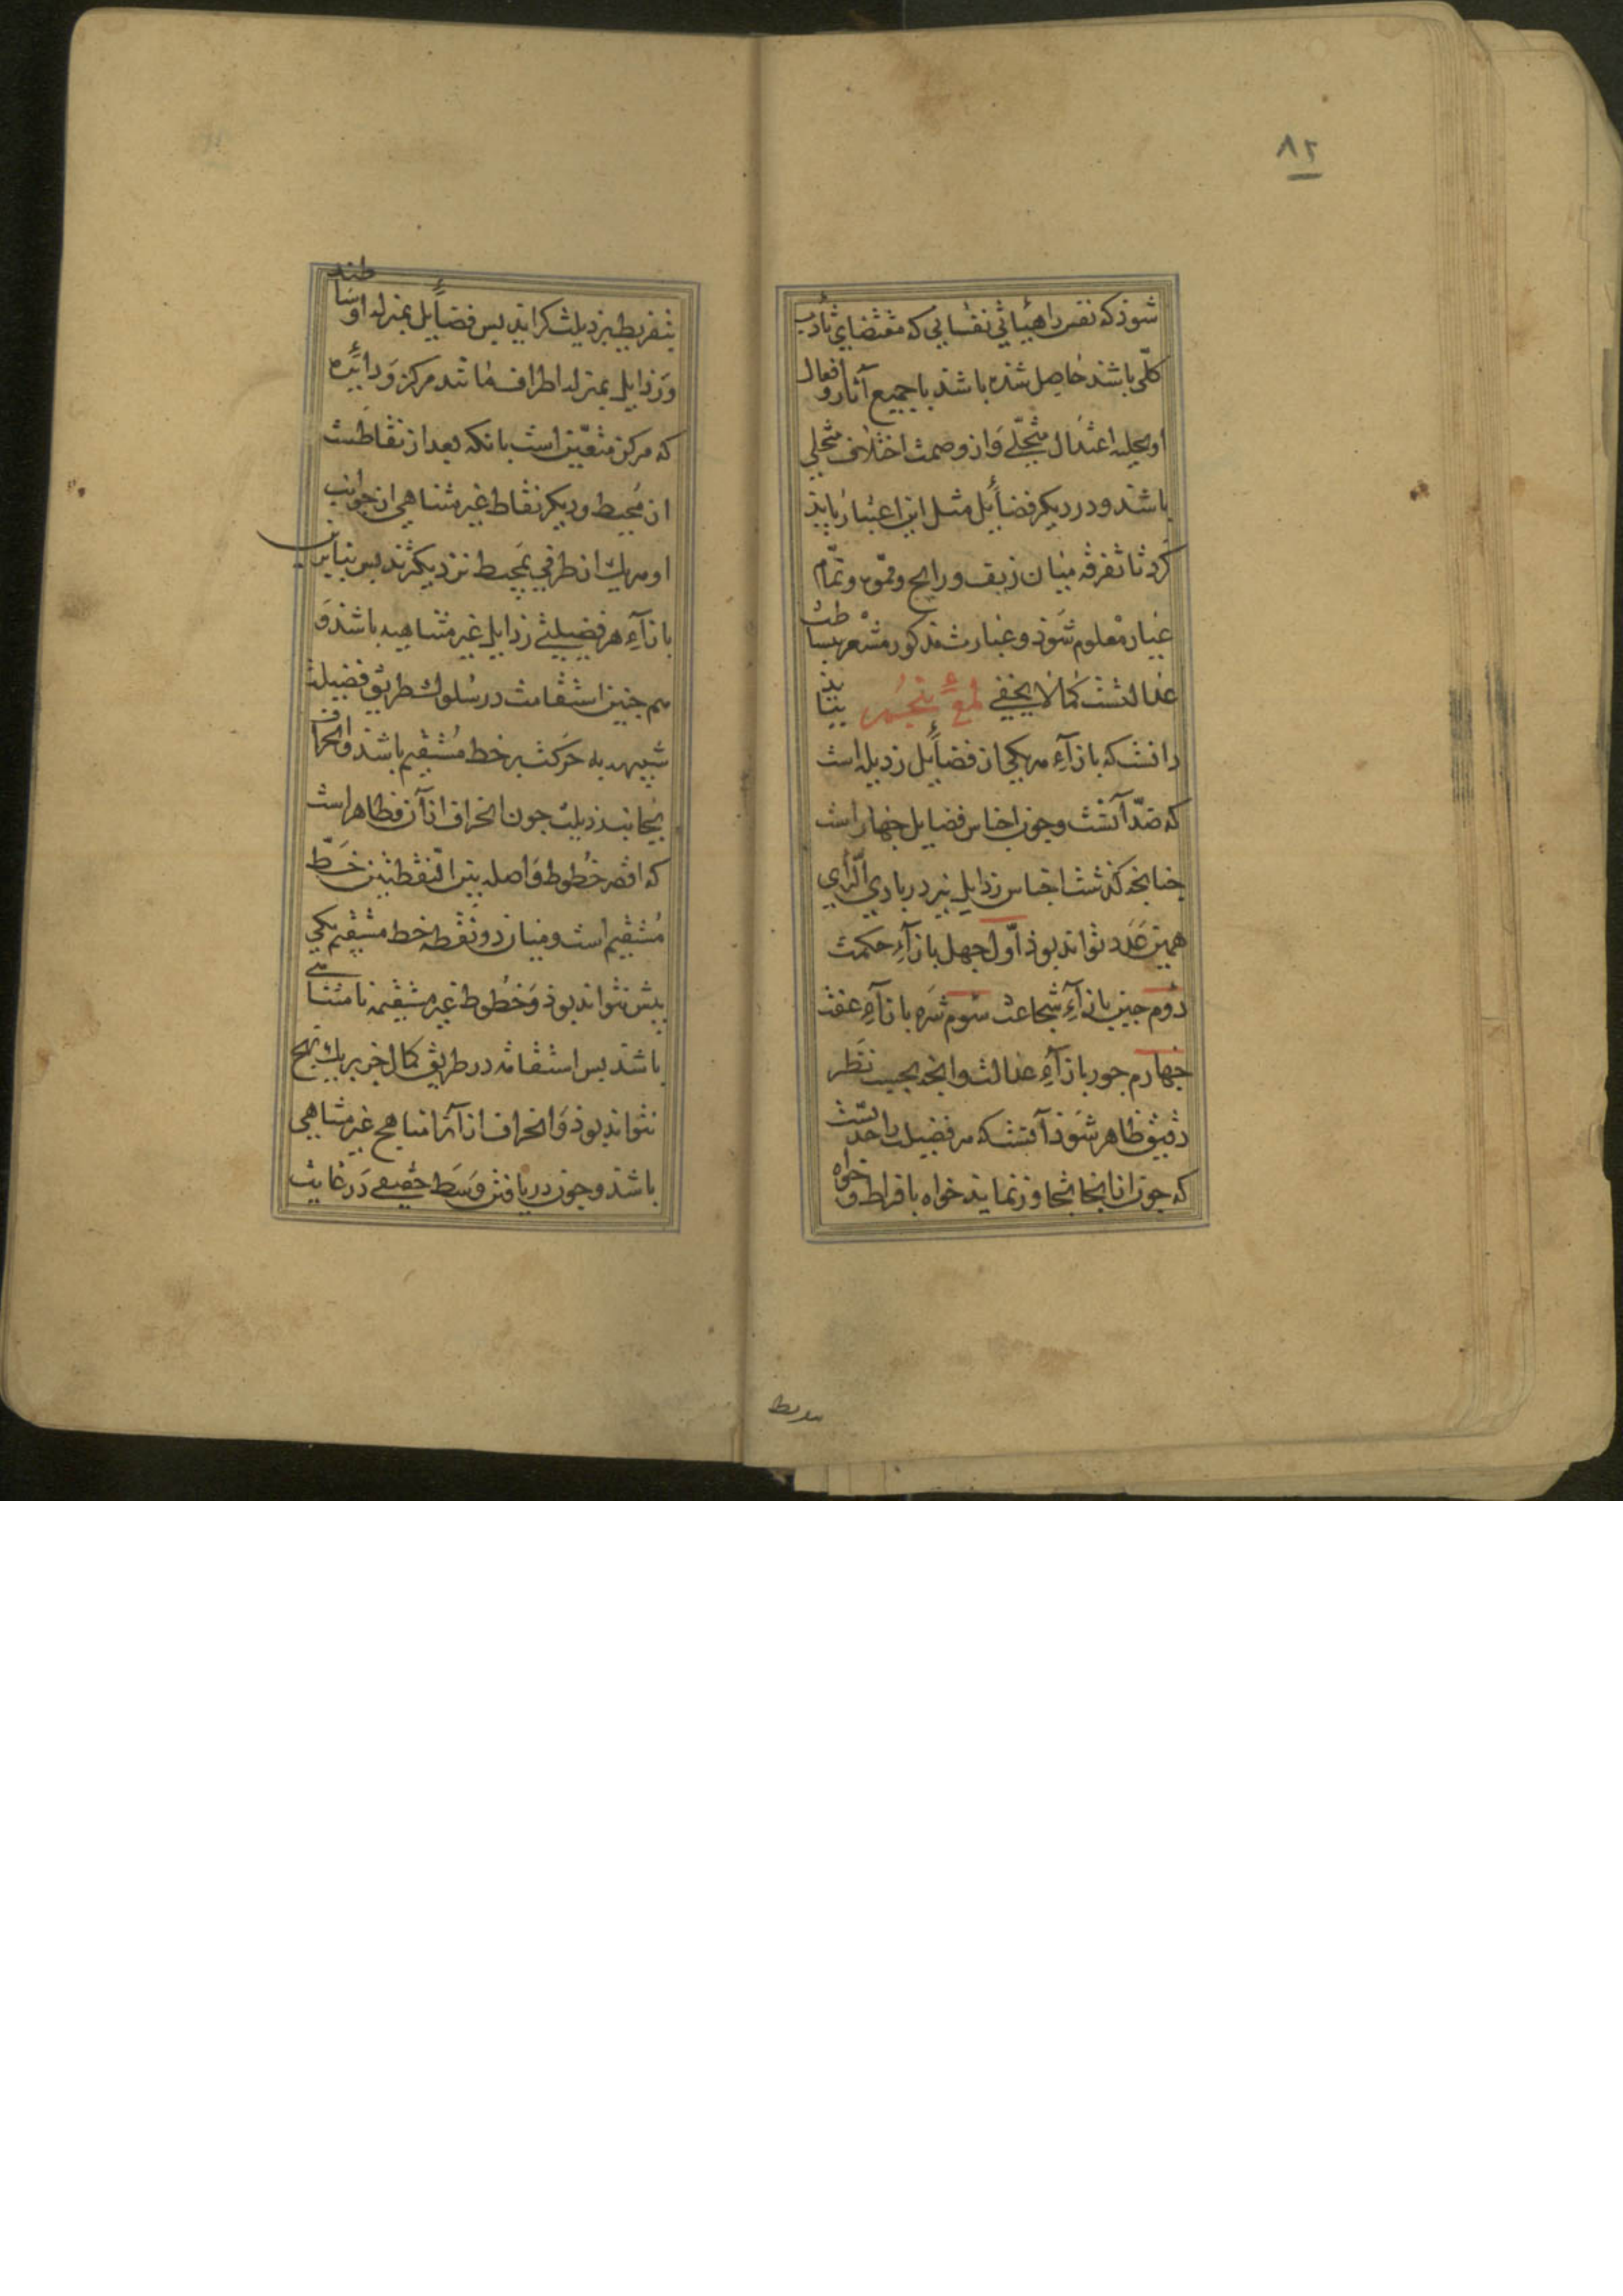 ٨٢
شوذ که نفس را هیاتی نفسانی که مقتضای تأدب
کلّی باشند حاصل شده باشد با جمیع آثار و افعال
او بحلیه اعتدال متجلّی و از وصمت اختلاف متجلی
باشند و در دیکر فضایل مثل این اعتبار باید
کرد تا تفرقه میان زیف و رایج و مموه و تمام
عیار معلوم شوذ و عبارت مذکور مشعر ببساطت
عدالتست کما لا یخفی لمعۀ پنجم بباید
دانست که بازآء هر یکی از فضایل رذیله است
که ضدّ آنست و چون اجناس فضایل چهار است
چنانچه کذشت اجناس رذایل نیز در بادی الرّأی
همین عدد تواند بوذ اوّل جهل بازآء حکمت
دوم جبن بازآء شجاعت سوم شره بازآء عفت
چهارم جور بازآء عدالت و انچه بحسب نظر
دقیق ظاهر شوذ آنست که هر فضیلت را حدّیست
که چون از انجا تجاوز نماید خواه بافراط و خواه
بتفریط برذیلت کراید پس فضایل بمنزله اوساطند
و رذایل بمنزله اطراف مانند مرکز و دایره
که مرکز متعیّن است بانکه بعد از نقاطست
از محیط و دیکر نقاط غیر متناهی از جوانب
او هر یک از طرفی بمحیط نزدیکترند پس بنابرین
بازآء هر فضیلتی رذایل غیر متناهیه باشذ و
هم چنین استقامت در سلوک طریق فضیلت
شبیهه به حرکت بر خط مستقیم باشذ و انحراف
بجانب رذیلت چون انحراف از آن و ظاهر است
که اقصر خطوط واصله بین النقطتین خطّ
مستقیم است و میان دو نقطه خط مستقیم یکی
بیش نتواند بوذ و خطوط غیر مستقیمه نامتناهی
باشند پس استقامه در طریق کمال جز بر یک نهج
نتواند بوذ و انحراف از آنرا مناهج غیر متناهی
باشد و چون دریافتن وسط حقیقی در غایت